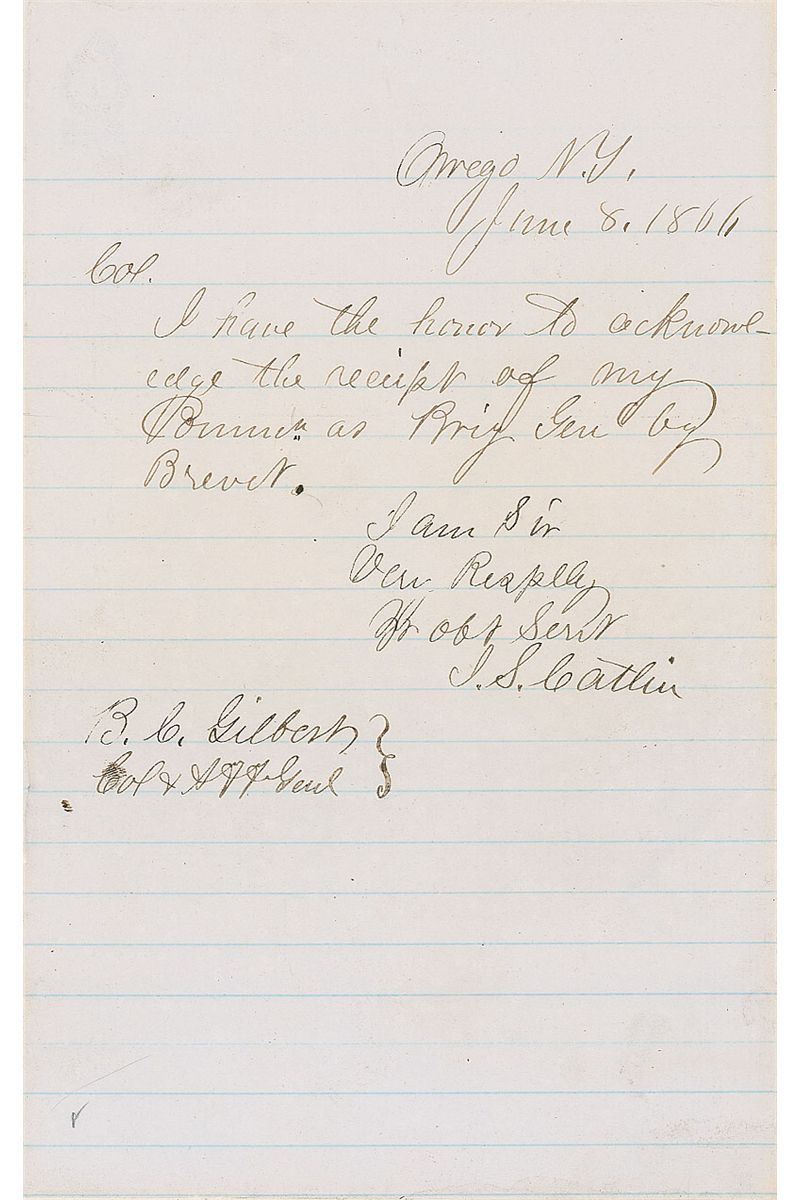 Owego N.Y.
June 8. 1866
Col.
I have the honor to acknowl-
edge the receipt of my
Commn as Brig Gen by
Brevet.
I am Sir
Very Respflly
Yr obt Servt
I. S. Catlin
B. C. Gilbert
Col & A A A Genl